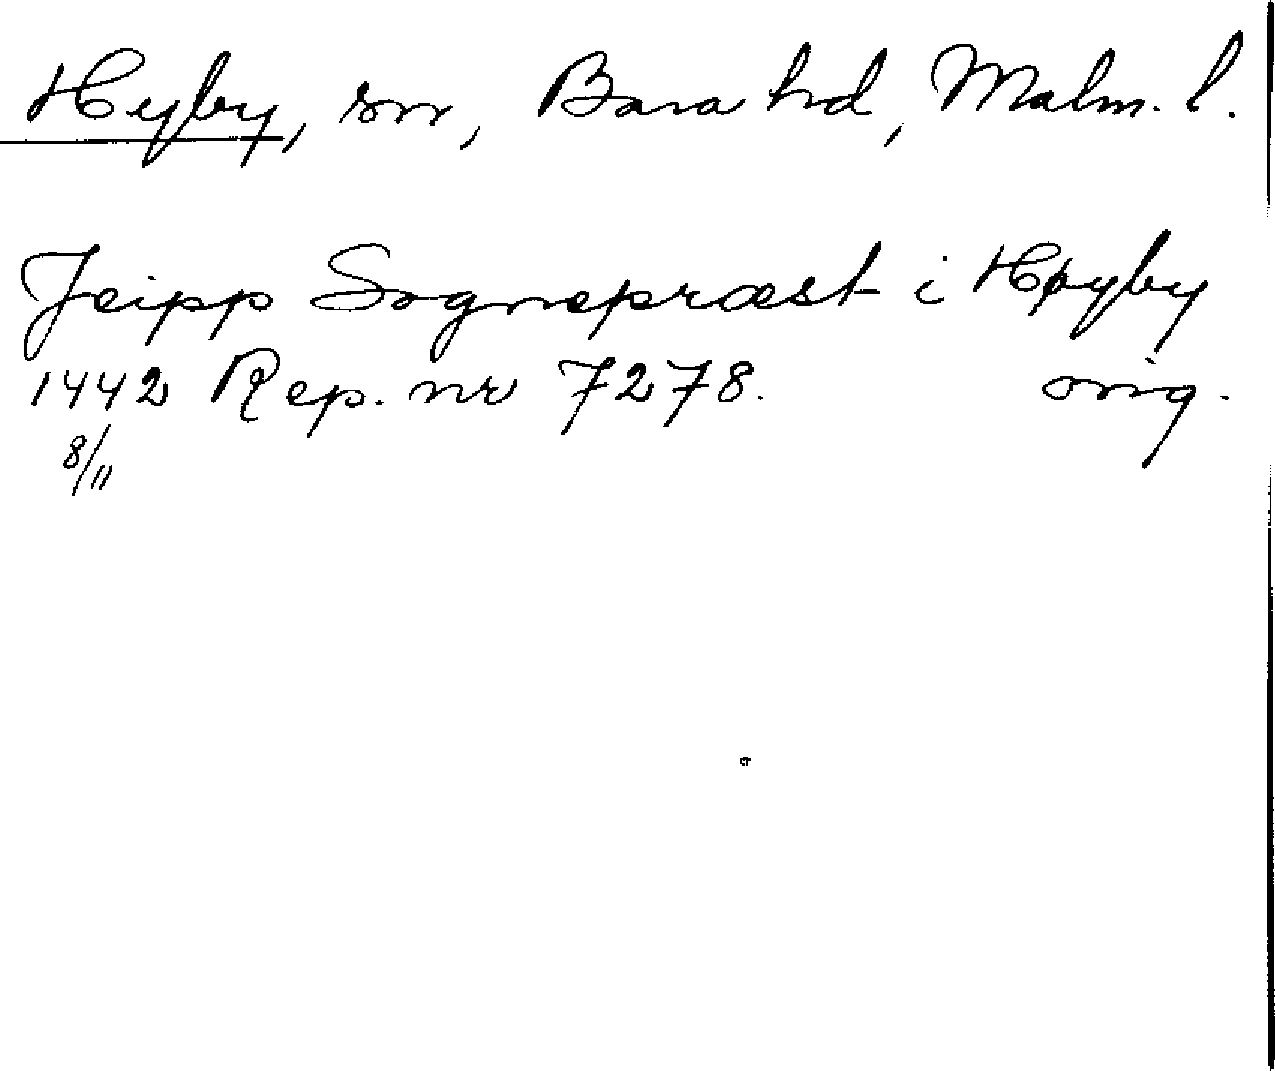 Hyby, sn, Bara hd, Malm. l.
Jeipp Sognepræst i Høyby
1442 Rep. nr 7278. orig.
8/11